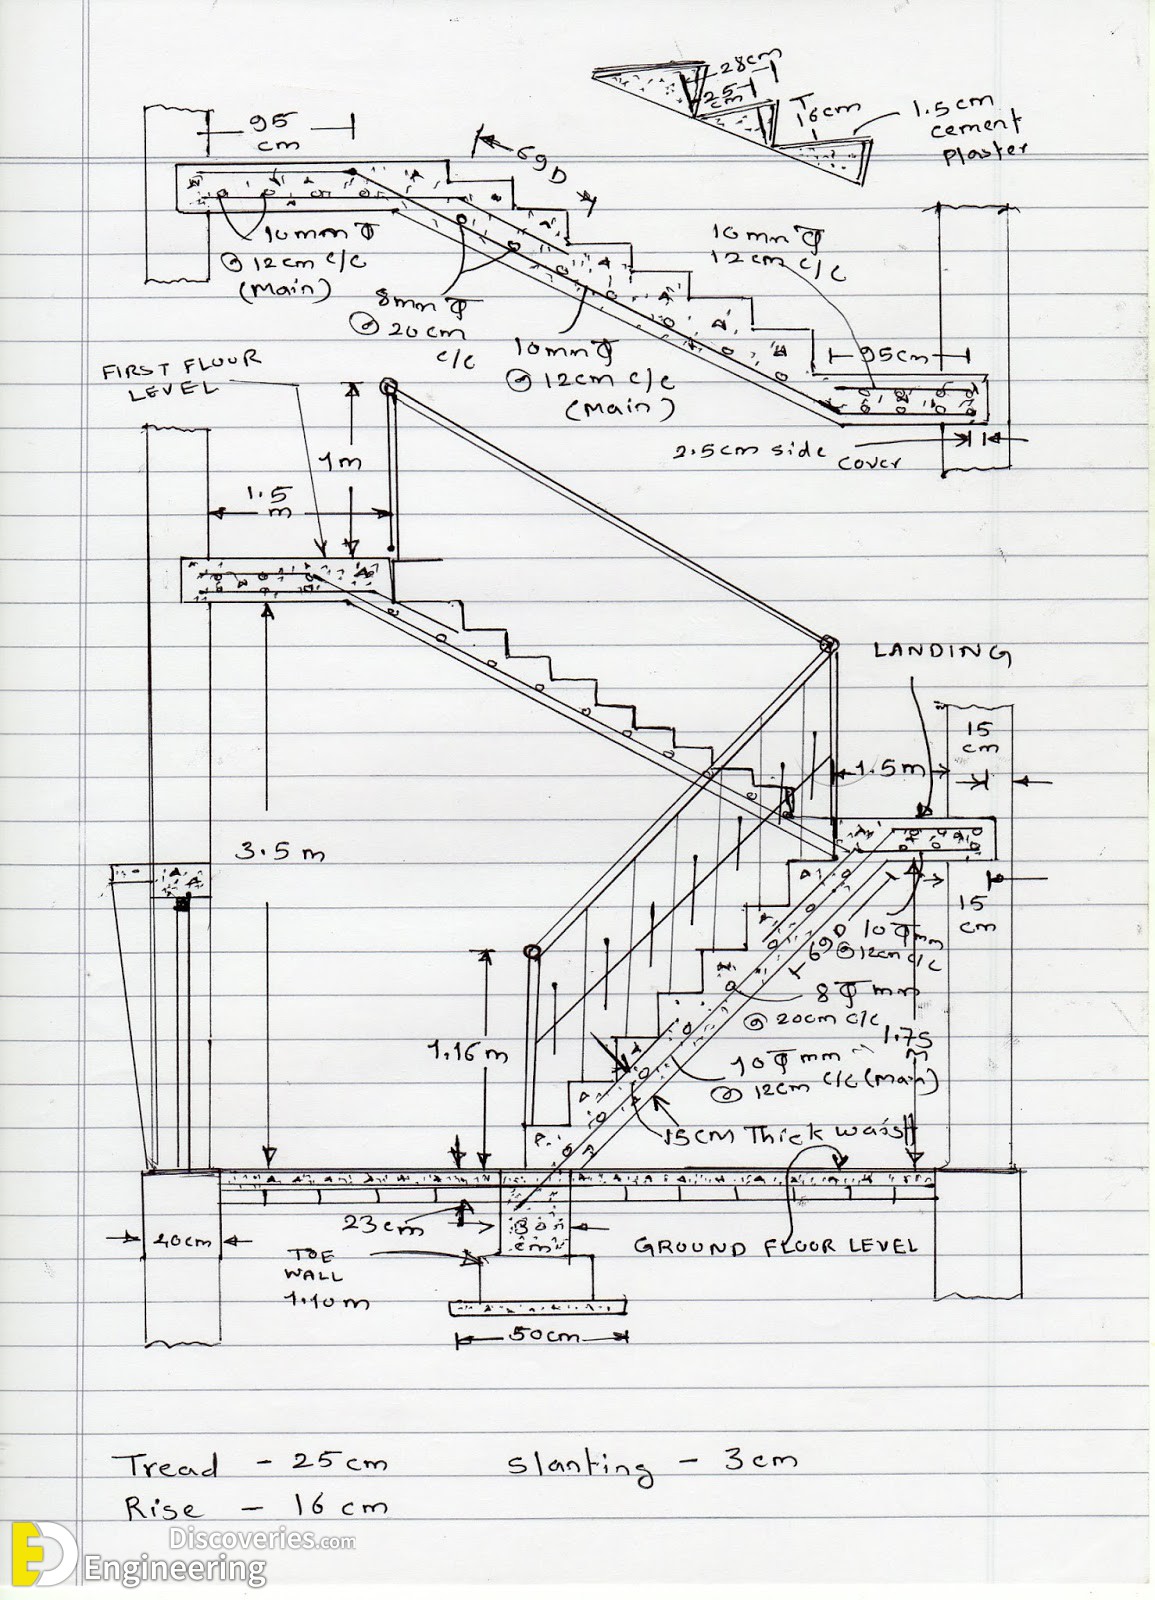 28cm
25
cm
16cm
1.5cm
cement
plaster
95
cm
69D
10mm Φ
@ 12cm c/c
(main)
8mm Φ
@ 20cm
c/c
10mm Φ
@ 12cm c/c
(main)
10mm Φ
12cm c/c
95cm
2.5cm side
cover
FIRST FLOOR
LEVEL
1m
1.5
m
LANDING
15
cm
1.5m
3.5m
15
cm
69D
10Φmm
@12cm c/c
8Φmm
@ 20cm c/c
1.75
m
10Φmm
@ 12cm c/c(main)
1.16m
15cm Thick waist
23cm
30
cm
40cm
TOE
WALL
1.10m
GROUND FLOOR LEVEL
50cm
Tread - 25cm
slanting - 3cm
Rise - 16cm
ED
Discoveries.com
Engineering